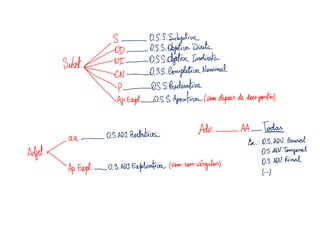 S ——— O.S.S. Subjetiva
OD ——— O.S.S. Objetiva Direta
Subst. OI ——— O.S.S. Objetiva Indireta
CN ——— O.S.S. Completiva Nominal
P ——— O.S.S. Predicativa
Ap. Expl. ——— O.S.S. Apositiva (vem depois de dois-pontos)
Adv. ——— AA ——— Todas
Ex.: O.S. ADV. Causal
O.S. ADV. Temporal
O.S. ADV. Final
(...)
aa ——— O.S. ADJ. Restritiva
Adjet.
Ap. Expl. ——— O.S. ADJ. Explicativa (vem com vírgulas)